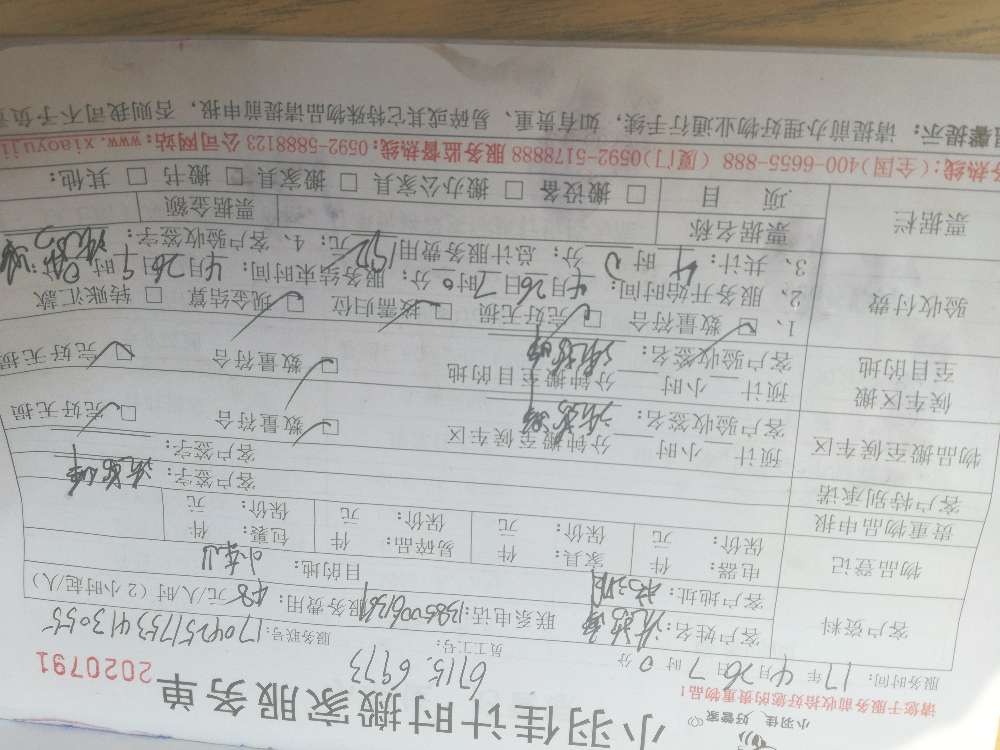 小羽佳 好管家
小羽佳计时搬家服务单
请您于服务前收拾好您的贵重物品！
2020791
服务时间：17年4月26日7时0分
员工工号：6115. 6973
服务联号：
客户资料
客户姓名：
联系电话：
服务费用：48元/人/时（2小时起/人）
客户地址：
目的地：
物品登记
电器： 件
家具： 件
易碎品： 件
包裹： 件
保价： 元
保价： 元
保价： 元
保价： 元
贵重物品申报
客户签字：
客户特别承诺
客户签字：
物品搬至候车区
预计 小时 分钟搬至候车区
客户验收签名：
□ 数量符合 □ 完好无损
候车区搬至目的地
预计 小时 分钟搬至目的地
客户验收签名：
□ 数量符合 □ 完好无损
验收付费
1、□ 数量符合 □ 完好无损 □ 按需归位 □ 现金结算 □ 转账汇款
2、服务开始时间：4月26日7时0分；服务结束时间：4月26日 时 分；
3、共计：4时0分；总计服务费用 元；4、客户验收签字：
票据栏
票据名称
票据金额
项 目
□ 搬设备 □ 搬办公家具 □ 搬家具 □ 搬书 □ 其他：
务热线：(全国)400-6655-888 (厦门)0592-5178888 服务监督热线：0592-5888123 公司网站：www.xiaoyuji
馨提示：请提前办理好物业通行手续，如有贵重、易碎或其它特殊物品请提前申报，否则我司不予负